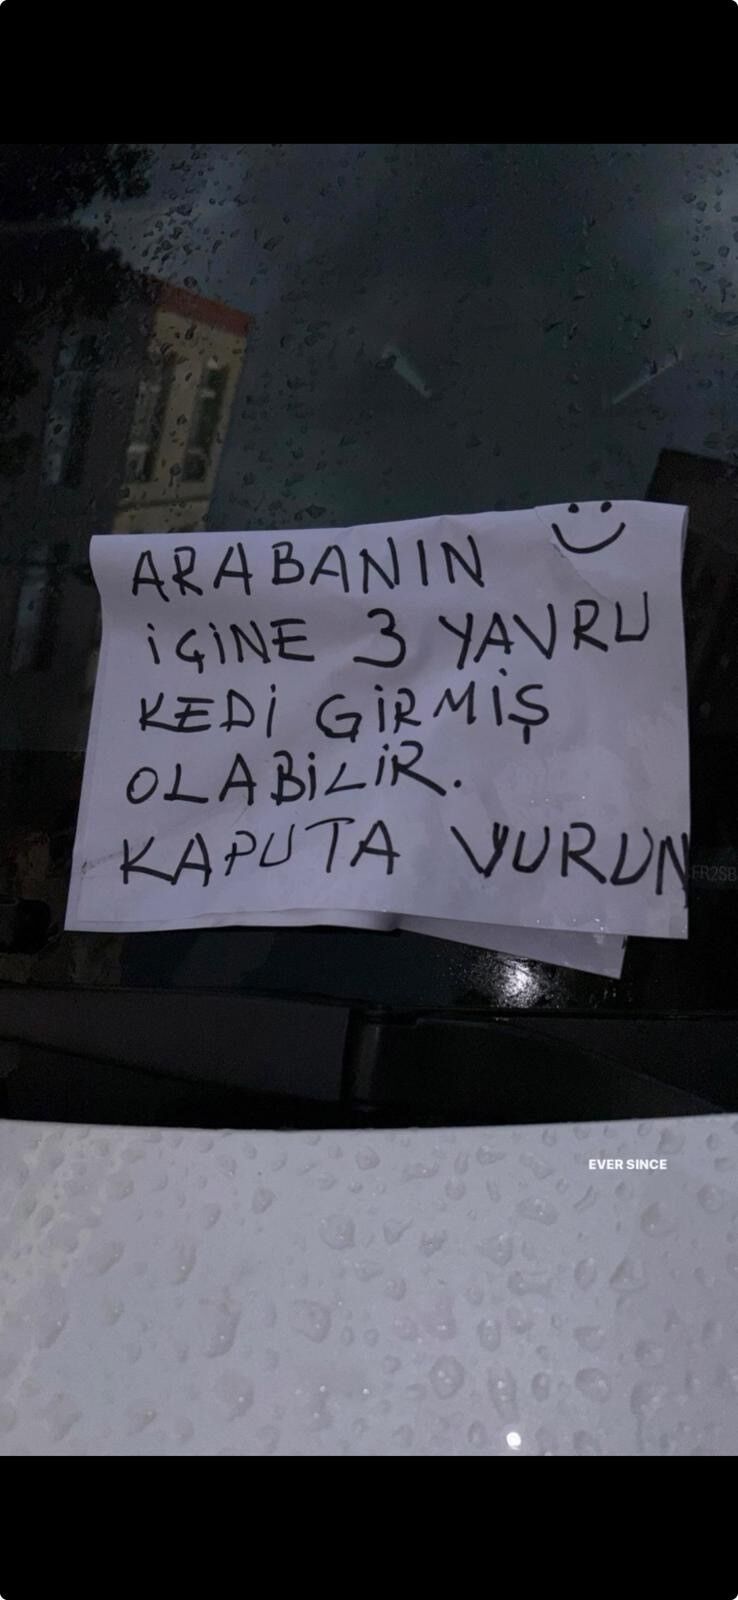 ARABANIN
İÇİNE 3 YAVRU
KEDİ GİRMİŞ
OLABİLİR.
KAPUTA VURUN
FR2SB
EVER SINCE